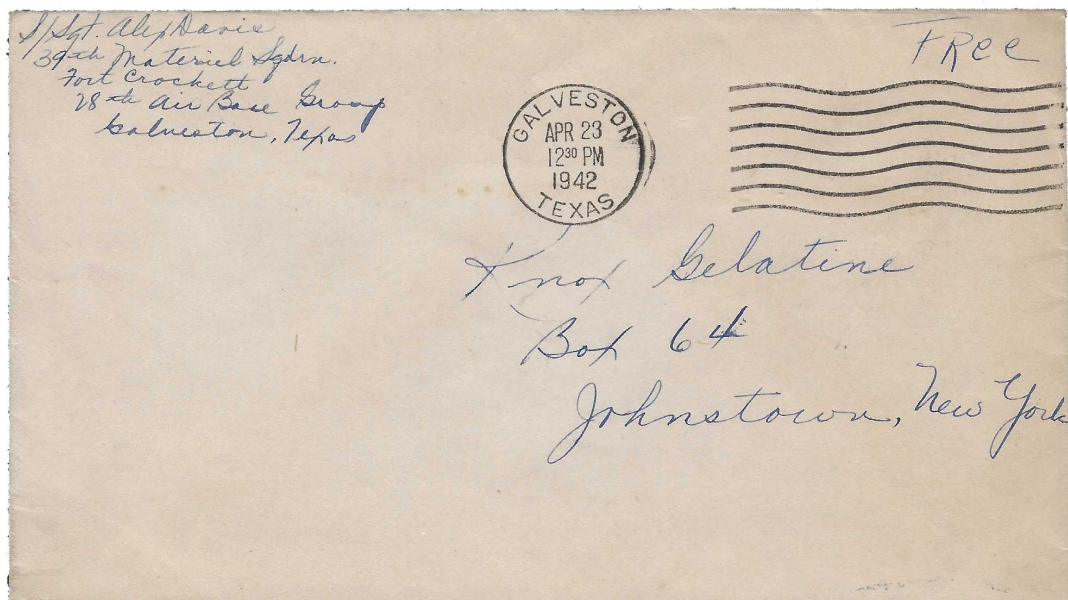 S/Sgt. Alex Davis
39th Materiel Sqdrn.
Fort Crockett
28th Air Base Group
Galveston, Texas
Free
GALVESTON
APR 23
12 30 PM
1942
TEXAS
Knox Gelatine
Box 64
Johnstown, New York